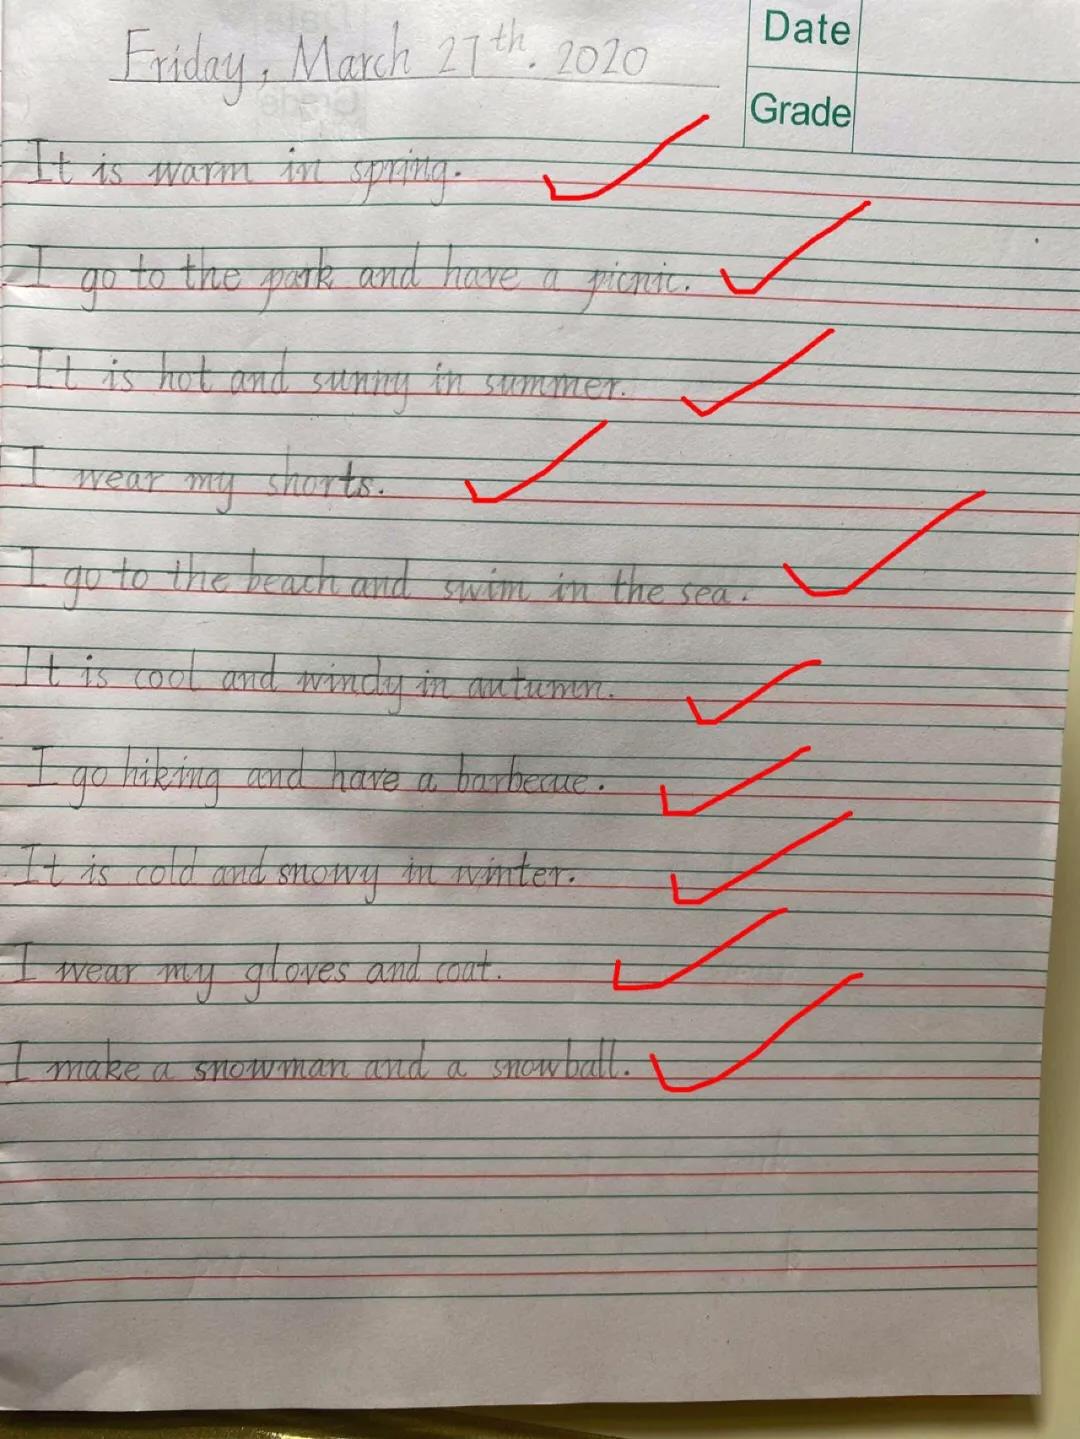 Friday, March 27th. 2020
Date
Grade
It is warm in spring.
I go to the park and have a picnic.
It is hot and sunny in summer.
I wear my shorts.
I go to the beach and swim in the sea.
It is cool and windy in autumn.
I go hiking and have a barbecue.
It is cold and snowy in winter.
I wear my gloves and coat.
I make a snowman and a snowball.